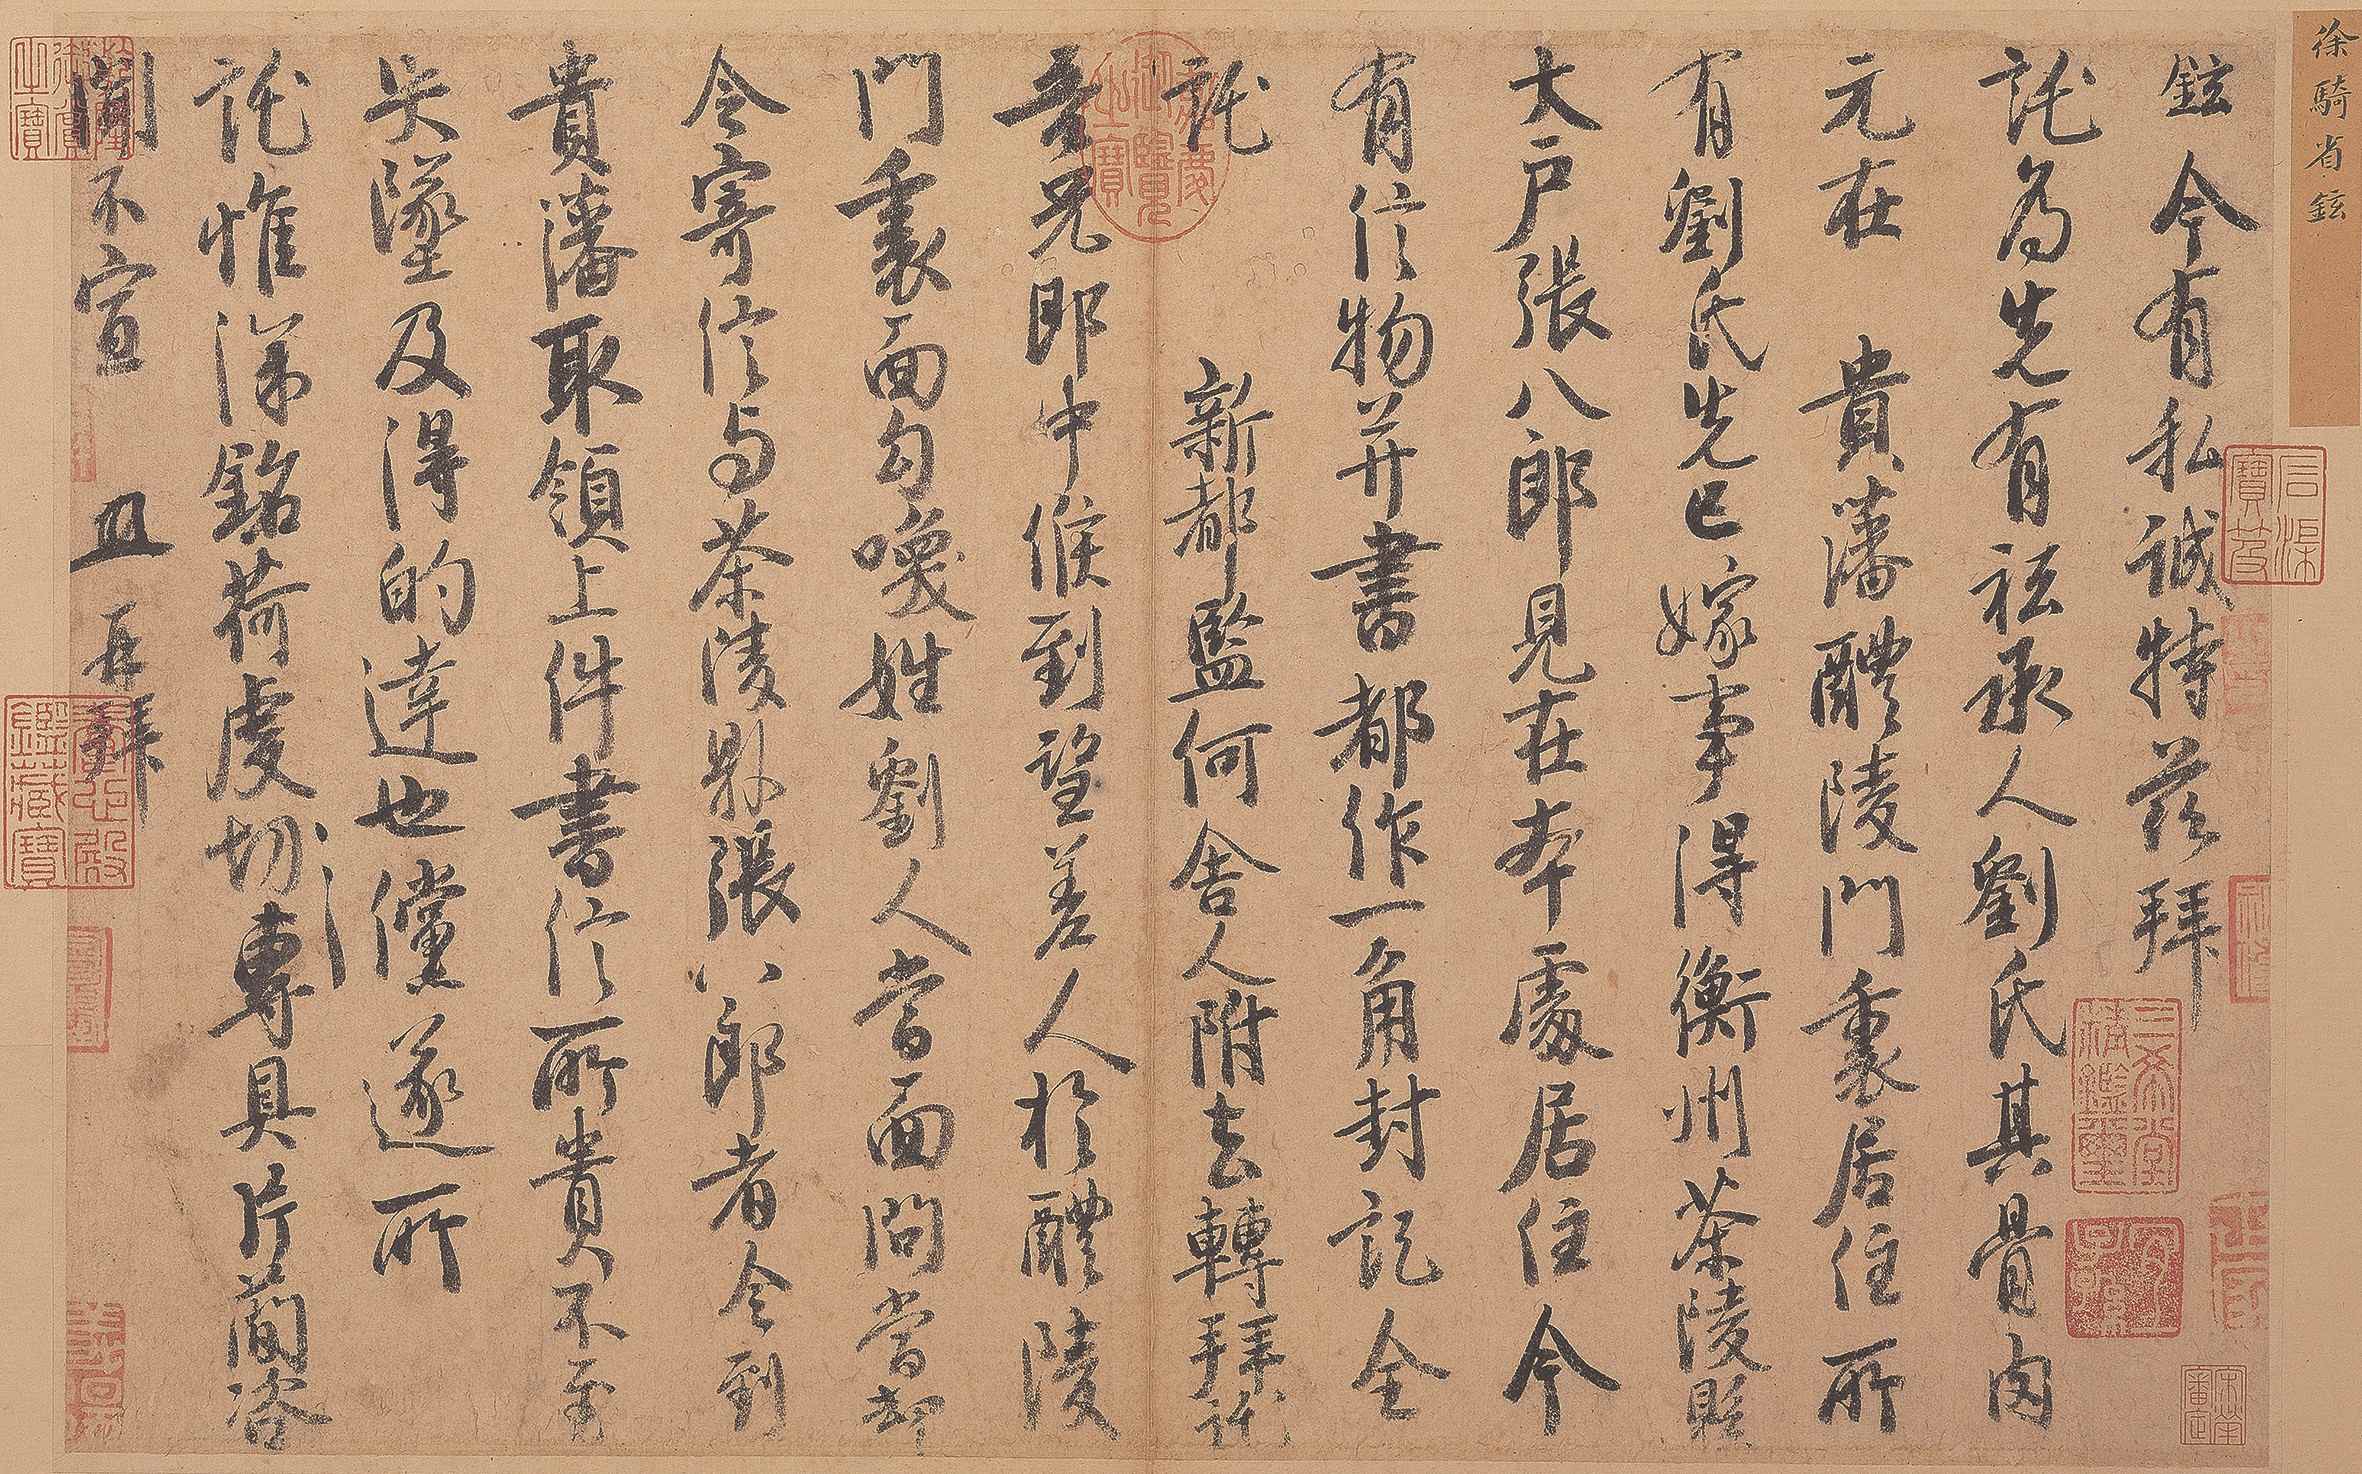 徐騎省鉉
鉉今有私誠特茲拜
託為先有祗承人劉氏其骨肉
元在 貴藩醴陵門裏居住所
有劉氏先已嫁事得衡州茶陵縣
大戶張八郎見在本處居住今
有信物并書都作一角封訖全
託 新都監何舍人附去轉拜託
吾兄郎中候到望差人於醴陵
門裏面勾喚姓劉人當面問當却
令寄信与茶陵縣張八郎者令到
貴藩取領上件書信所貴不至
失墜及得的達也儻遂所
託惟深銘荷虔切專具片簡咨
聞不宣 再拜
石渠寶笈
三希堂精鑑璽
宜子孫
嘉慶御覽之寶
養心殿鑑藏寶
宋犖審定